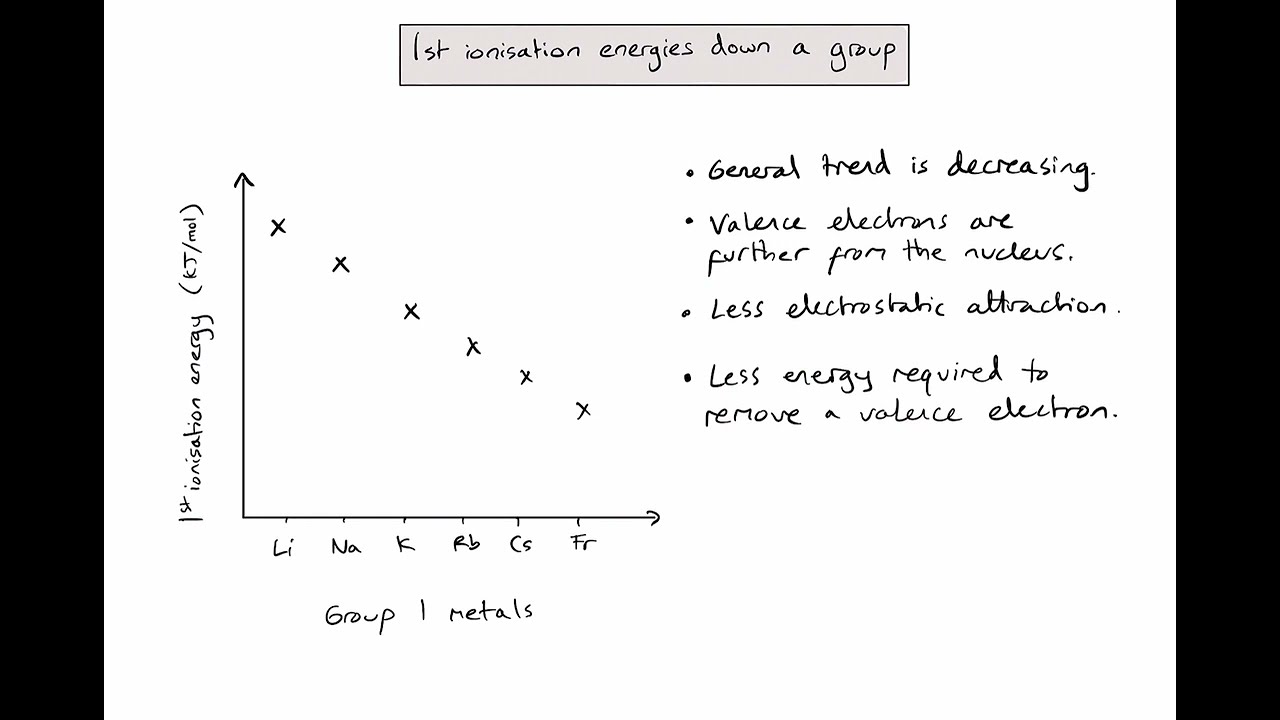 1st ionisation energies down a group
1st ionisation energy (kJ/mol)
Li Na K Rb Cs Fr
Group 1 metals
• General trend is decreasing.
• Valence electrons are
further from the nucleus.
• Less electrostatic attraction.
• Less energy required to
remove a valence electron.